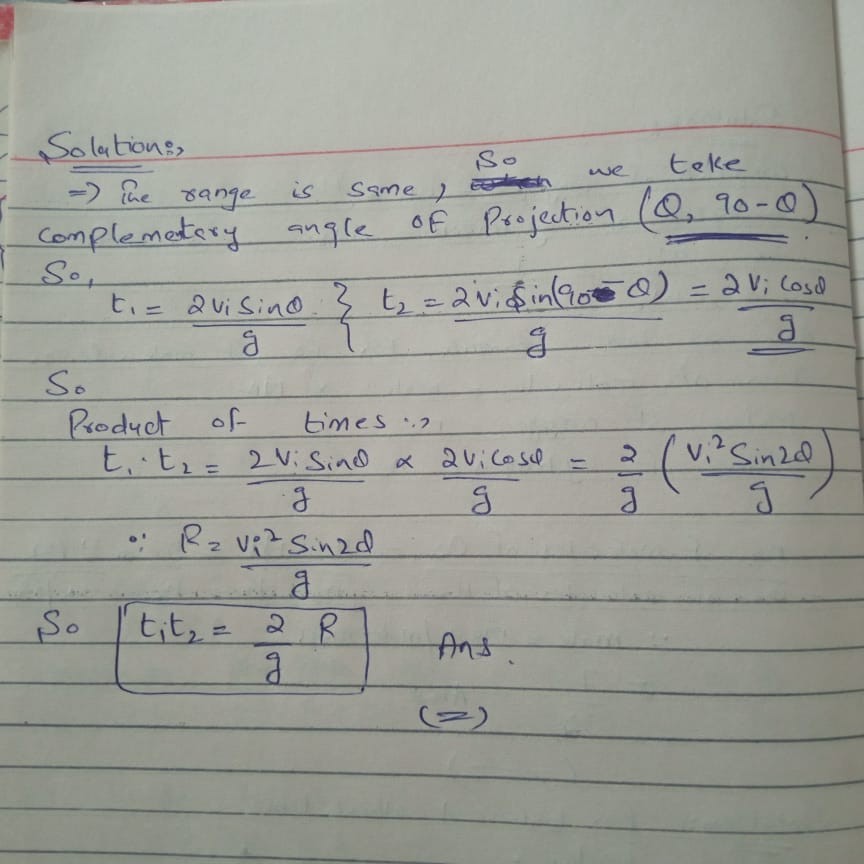 Solution:,
=> The range is same, So we take
complemetary angle of Projection (θ, 90-θ).
So,
t₁ = 2vi Sinθ/g } t₂ = 2vi Sin(90-θ)/g = 2vi Cosθ/g
So
Product of times :,
t₁·t₂ = 2Vi Sinθ/g × 2Vi Cosθ/g = 2/g (Vi² Sin2θ/g)
∵ R = Vi² Sin2θ/g
So t₁t₂ = 2/g R Ans.
(=)